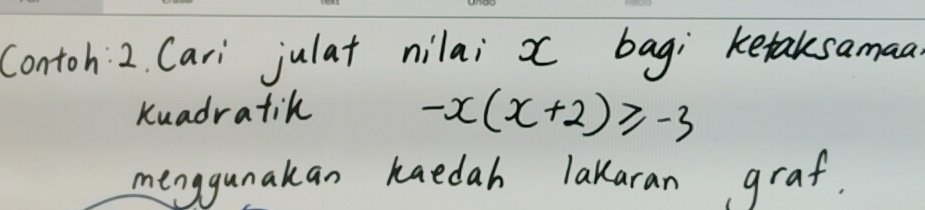 Contoh:2. Cari julat nilai x bagi ketaksamaa
kuadratik -x(x+2)≥-3
menggunakan kaedah lakaran graf.